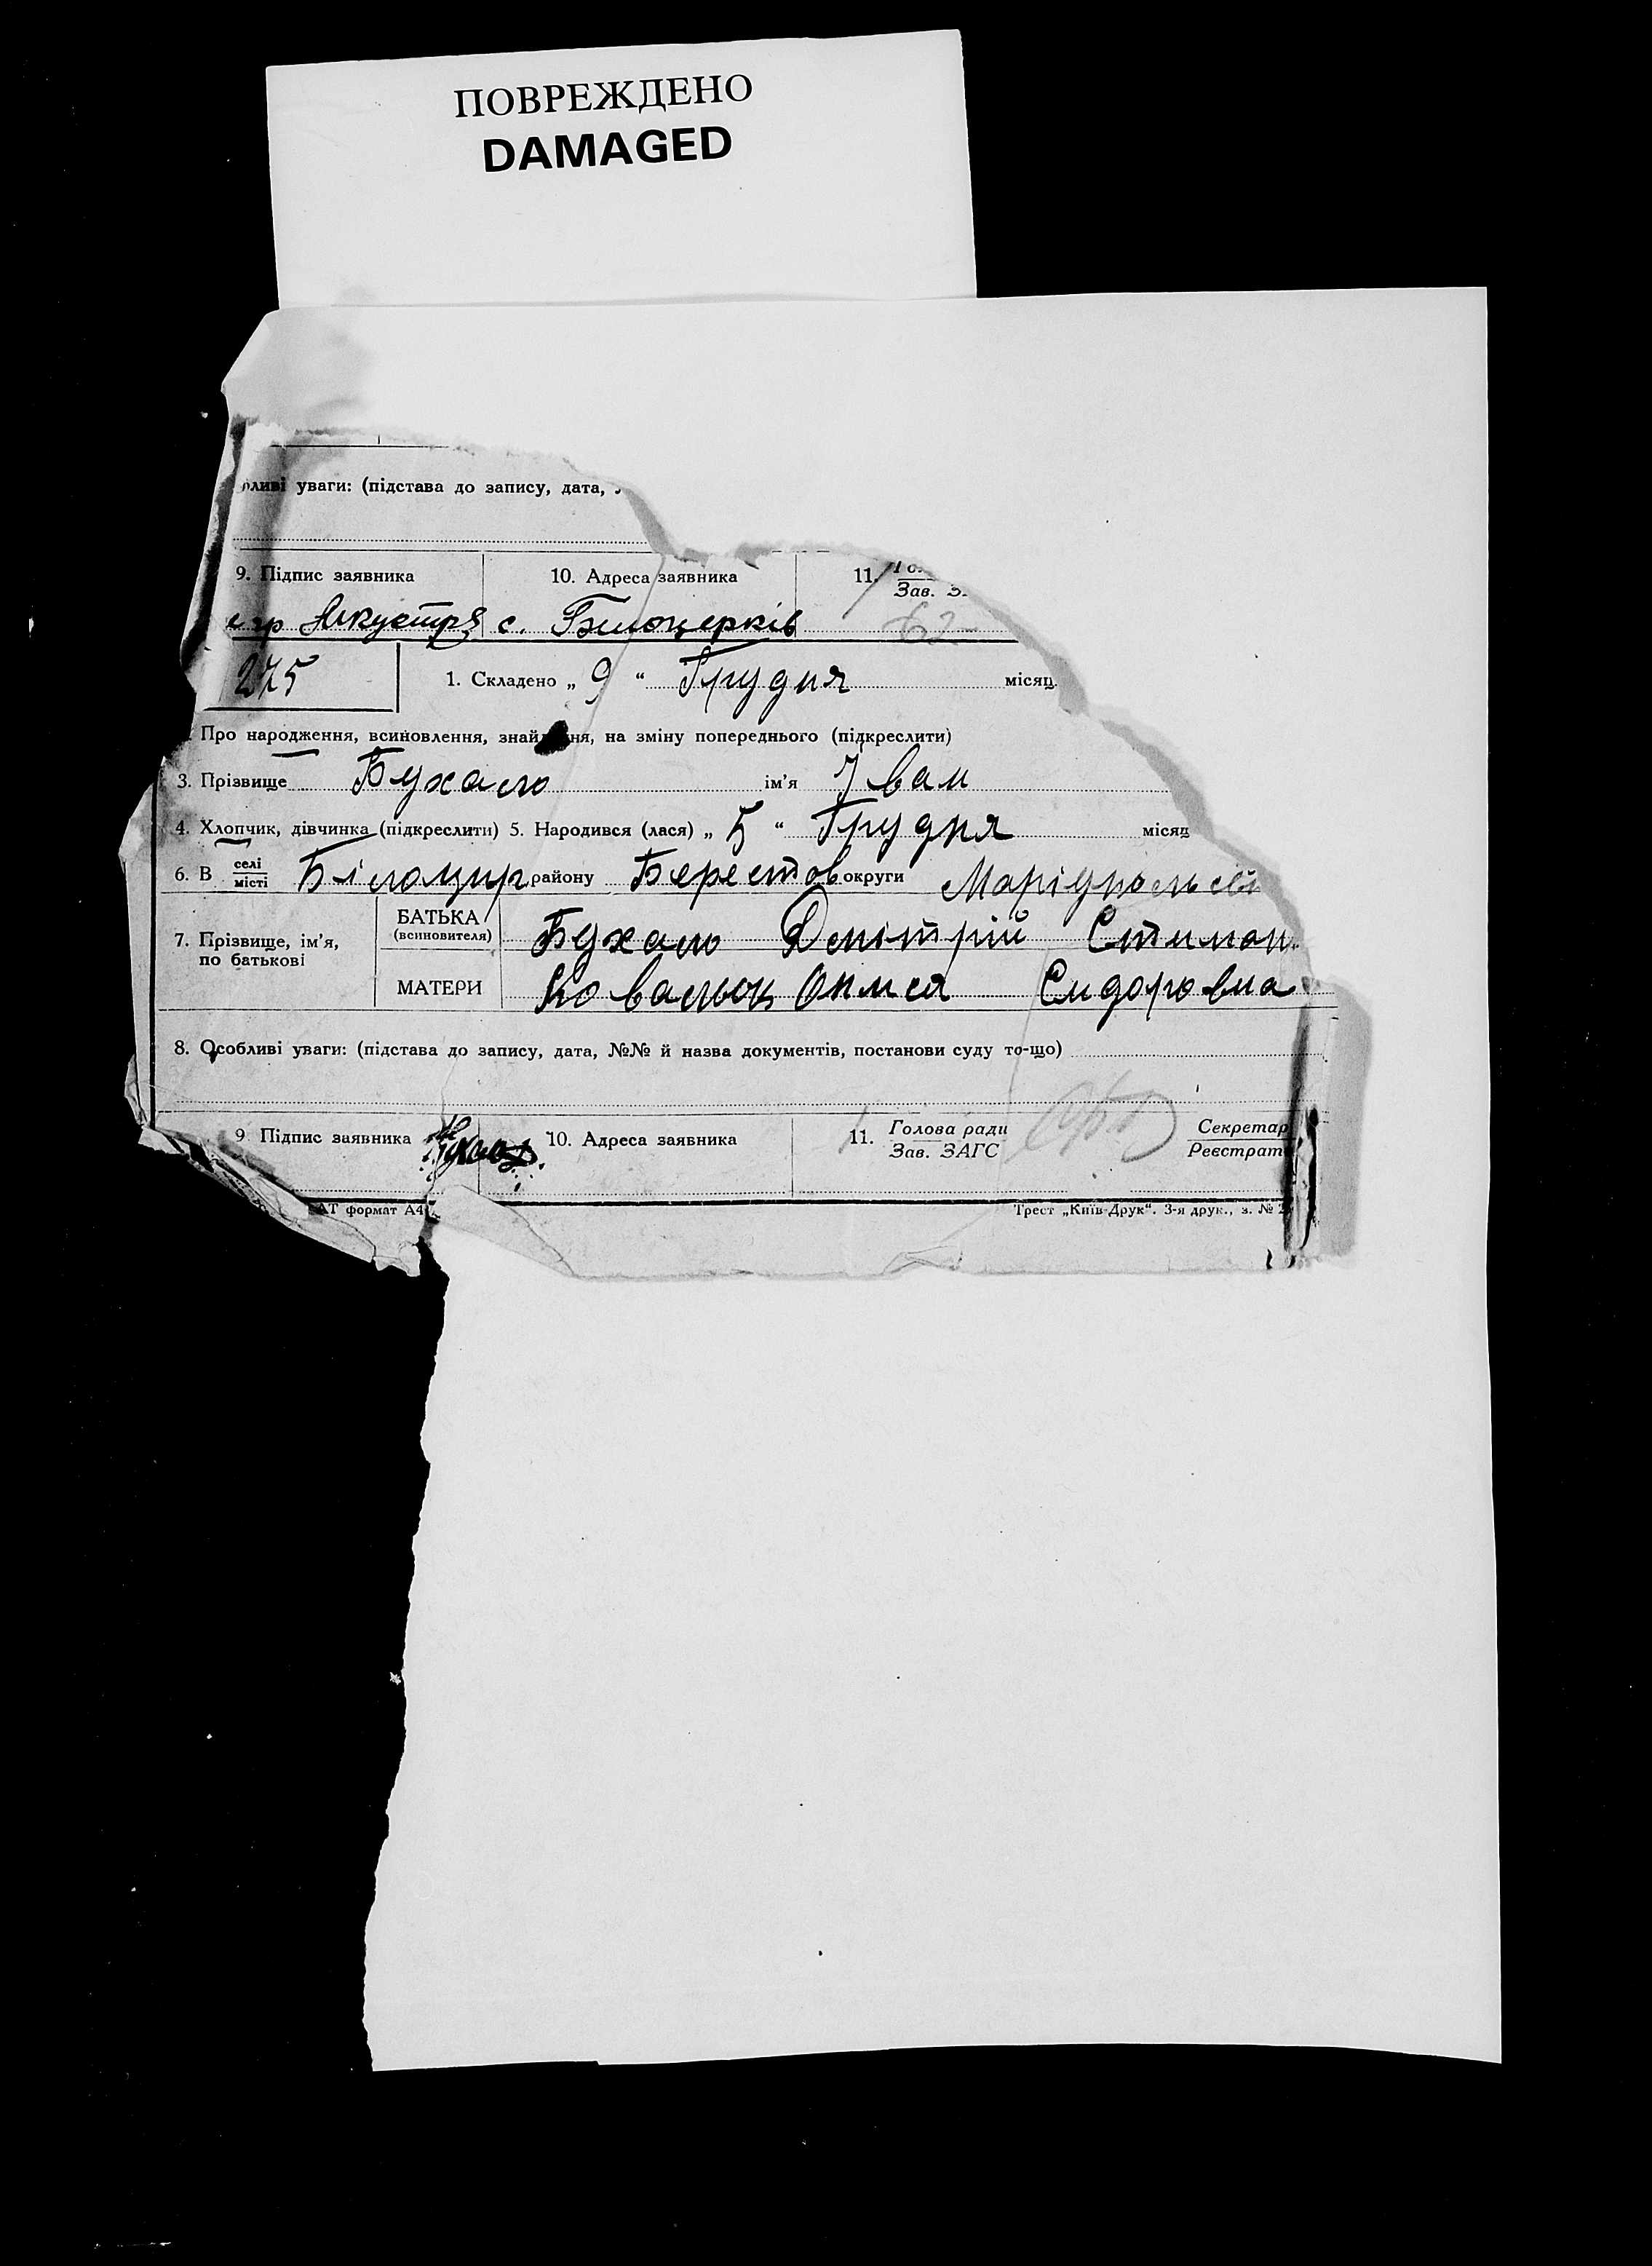 ПОВРЕЖДЕНО
DAMAGED
уваги: (підстава до запису, дата,
9. Підпис заявника 10. Адреса заявника 11.
Зав.
с.
275 1. Складено „ 9 “ Грудня місяц
Про народження, всиновлення, на зміну попереднього (підкреслити)
3. Прізвище Бухало ім’я Іван
4. Хлопчик, дівчинка (підкреслити) 5. Народився (лася) „ 5 “ Грудня місяц
6. В селі місті району Берестов округи
7. Прізвище, ім’я, по батькові
БАТЬКА (всиновителя) Бухало Дмітрій
МАТЕРИ Сидоровна
8. Особливі уваги: (підстава до запису, дата, №№ й назва документів, постанови суду то-що)
9 Підпис заявника 10. Адреса заявника 11. Голова ради Секретар
Зав. ЗАГС Реєстрат
АТ формат А4 Трест „Київ-Друк“. 3-я друк., з. №